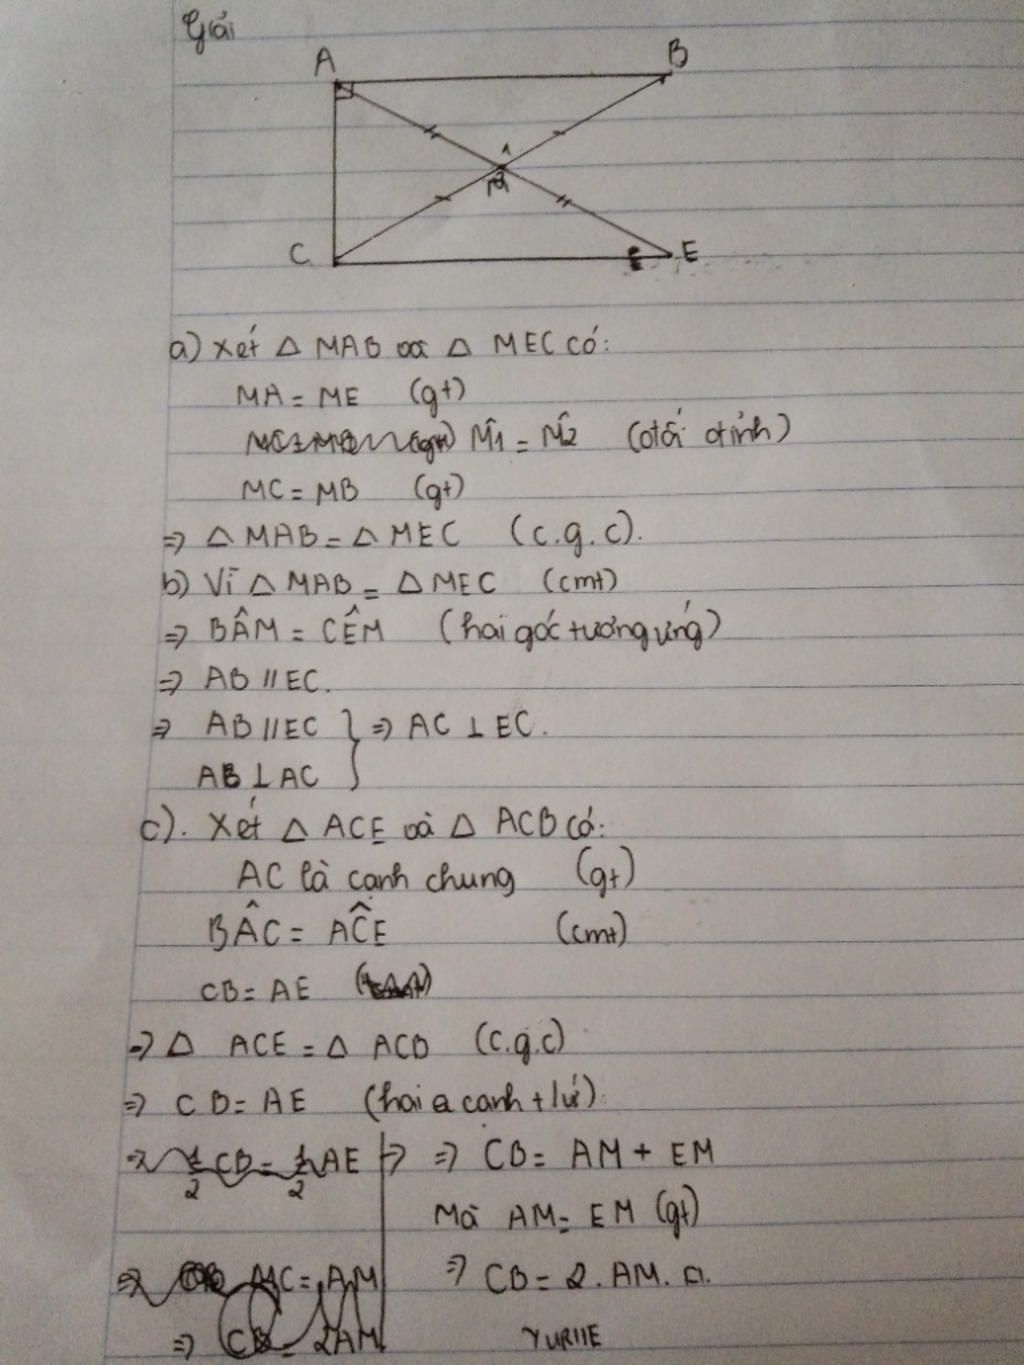 Giải
A
B
M
C
E
a) Xét △ MAB và △ MEC có:
MA = ME (gt)
M̂1 = M̂2 (đối đỉnh)
MC = MB (gt)
=> △ MAB = △ MEC (c.g.c).
b) Vì △ MAB = △ MEC (cmt)
=> BÂM = CÊM (hai góc tương ứng)
=> AB // EC.
=> AB // EC } => AC ⊥ EC.
AB ⊥ AC
c). Xét △ ACE và △ ACB có:
AC là cạnh chung (gt)
BÂC = AĈE (cmt)
CB = AE
=> △ ACE = △ ACB (c.g.c)
=> CB = AE (hai cạnh t/ứ)
=> 1/2 CB = 1/2 AE => CB = AM + EM
Mà AM = EM (gt)
=> MC = AM => CB = 2. AM. □.
=> CB = 2AM YURIIE